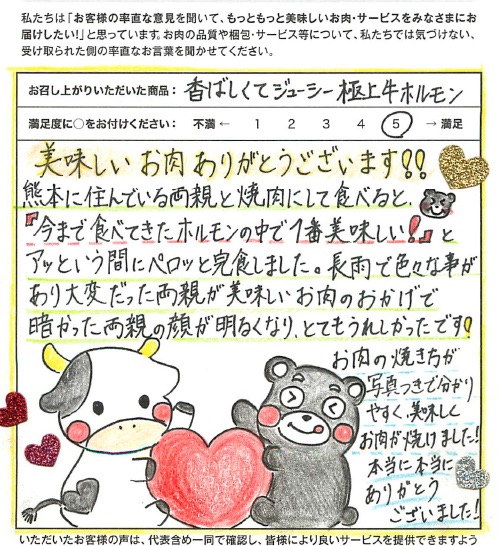 私たちは「お客様の率直な意見を聞いて、もっともっと美味しいお肉・サービスをみなさまにお
届けしたい!」と思っています。お肉の品質や梱包・サービス等について、私たちでは気づけない、
受け取られた側の率直なお言葉を聞かせてください。
お召し上がりいただいた商品： 香ばしくてジューシー極上牛ホルモン
満足度に○をお付けください： 不満 ← 1 2 3 4 5 → 満足
美味しいお肉ありがとうございます!!
熊本に住んでいる両親と焼肉にして食べると、
『今まで食べてきたホルモンの中で1番美味しい!』と
アッという間にペロッと完食しました。長雨で色々な事が
あり大変だった両親が美味しいお肉のおかげで
暗かった両親の顔が明るくなり、とてもうれしかったです!
お肉の焼き方が
写真つきで分かり
やすく、美味しく
お肉が焼けました!
本当に本当に
ありがとう
ございました!
いただいたお客様の声は、代表含め一同で確認し、皆様により良いサービスを提供できますよう